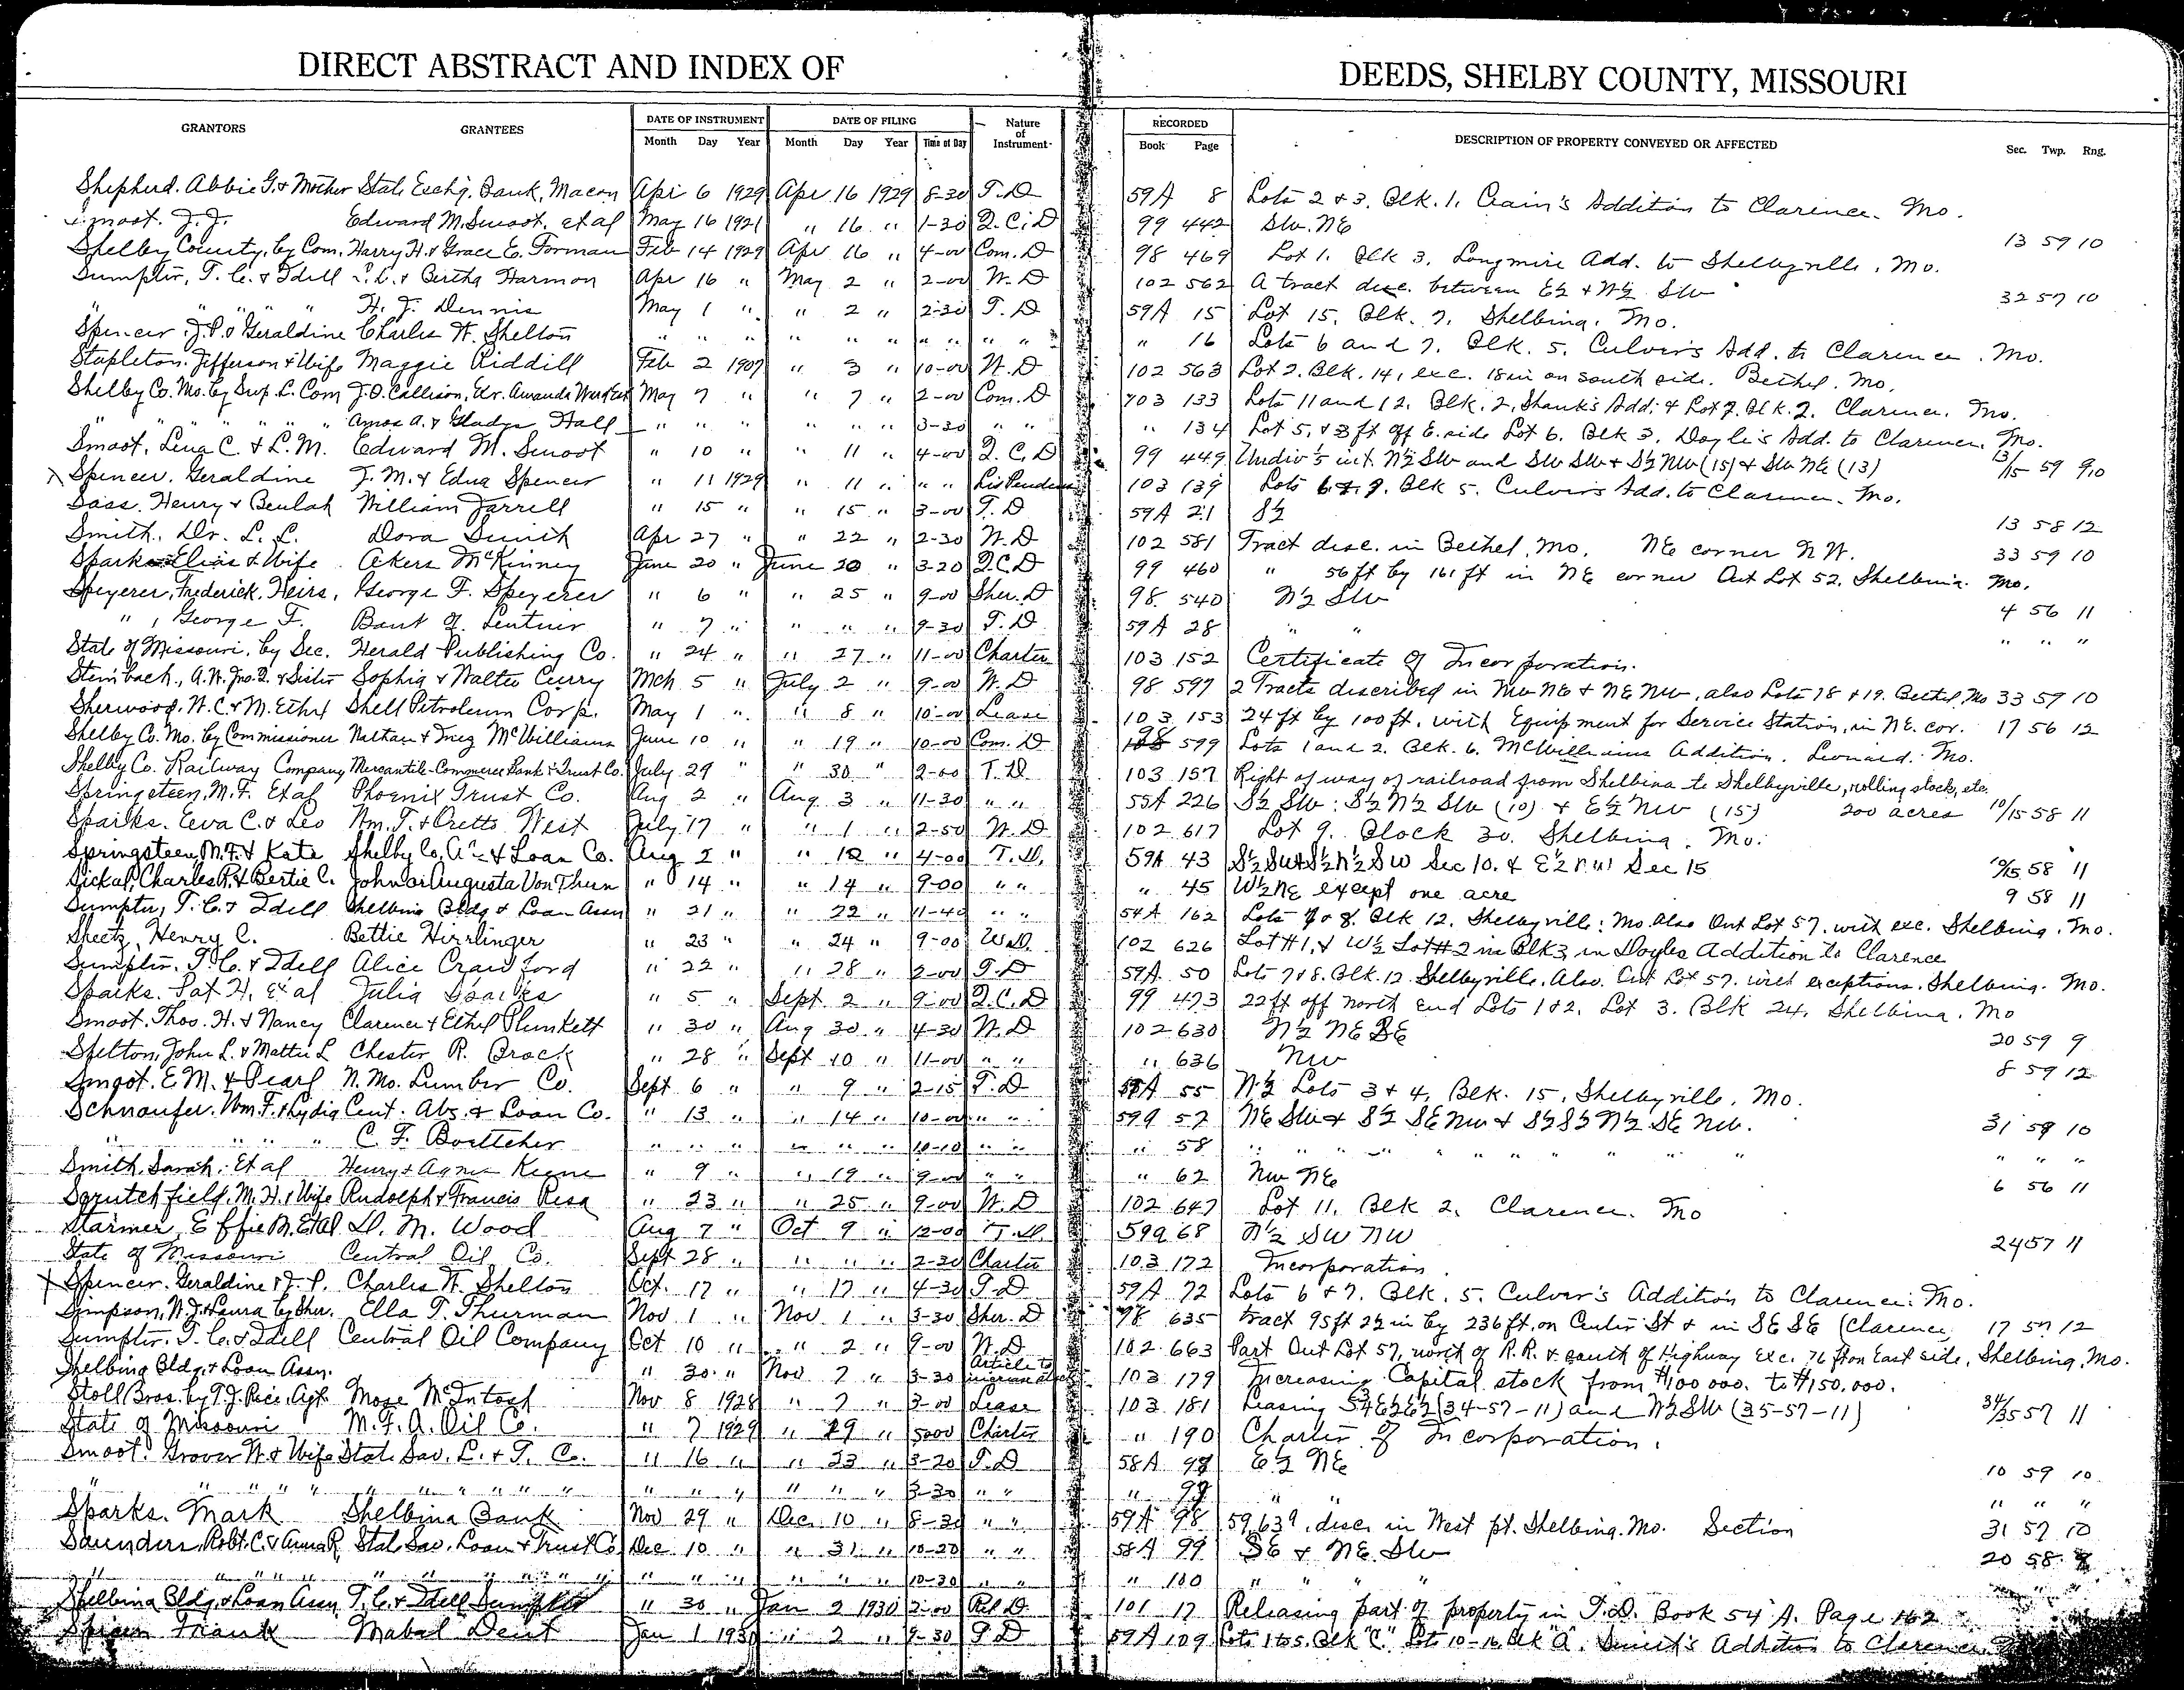 DIRECT ABSTRACT AND INDEX OF DEEDS, SHELBY COUNTY, MISSOURI
GRANTORS GRANTEES DATE OF INSTRUMENT DATE OF FILING Nature of Instrument RECORDED DESCRIPTION OF PROPERTY CONVEYED OR AFFECTED
Month Day Year Month Day Year Time of Day Book Page Sec. Twp. Rng.
Shepherd. Abbie G. & Mother State Exch'g. Bank, Macon Apr 6 1929 Apr 16 1929 8-30 T.D 59A 8 Lots 2 & 3, Blk. 1, Crain's Addition to Clarence. Mo.
Smoot. J.J. Edward M. Smoot, et al May 16 1921 " 16 " 1-30 Q.C.D 99 442 SW. NE 13 59 10
Shelby County, by Com. Harry H. & Grace E. Forman Feb 14 1929 Apr 16 " 4-00 Com. D 98 469 Lot 1. Blk 3. Longmire Add. to Shelbyville, Mo.
Sumpter, T. C. & Idell & Bertha Harmon Apr 16 " May 2 " 2-00 W. D 102 562 A tract desc. between E½ & W½ SW 32 57 10
" " " " H. J. Dennis May 1 " " 2 " 2-30 T. D 59A 15 Lot 15. Blk. 7. Shelbina. Mo.
Spencer, J.P. & Geraldine Charles W. Shelton " " " " " " " " " " " 16 Lots 6 and 7. Blk. 5. Culver's Add. to Clarence. Mo.
Stapleton. Jefferson & Wife Maggie Riddill Feb 2 1907 " 3 " 10-00 W. D 102 563 Lot 2. Blk. 14, exc. 18 in on south side. Bethel. Mo.
Shelby Co. Mo. by Sup. L. Com J. O. Callison, Ex. Amanda May 7 " " 7 " 2-00 Com. D 103 133 Lots 11 and 12. Blk. 2, Shank's Add; & Lot 7. Blk. 2. Clarence. Mo.
" " " " " Amos A. & Gladys Hall " " " " " " 3-30 " " " 134 Lot 5, & 3 ft off E. side Lot 6. Blk 3. Doyle's Add. to Clarence. Mo.
Smoot, Lena C. & L. M. Edward M. Smoot " 10 " " 11 " 4-00 Q. C. D 99 449 Undiv ⅕ int. N½ SW and SW SW & S½ NW (15) & SW NE (13) 13/15 59 9,10
X Spencer. Geraldine J. M. & Edna Spencer " 11 1929 " 11 " " " Lis Pendens 103 139 Lots 6 & 7. Blk 5. Culver's Add. to Clarence. Mo.
Sass. Henry & Beulah William Jarrell " 15 " " 15 " 3-00 T. D 59A 21 S½ 13 58 12
Smith. Dr. L. L. Dora Smith Apr 27 " " 22 " 2-30 W. D 102 581 Tract desc. in Bethel, Mo. NE corner N W. 33 59 10
Sparks Elias & Wife Akers McKinney June 20 " June 20 " 3-20 Q.C.D 99 460 " 56 ft by 161 ft in NE corner Out Lot 52. Shelbina. Mo.
Speyerer, Frederick. Heirs, George F. Speyerer " 6 " " 25 " 9-00 Sher. D 98 540 N½ SW 4 56 11
" , George F. Bank of Lentner " 7 " " " " 9-30 T. D 59A 28 " " " " "
State of Missouri, by Sec. Herald Publishing Co. " 24 " " 27 " 11-00 Charter 103 152 Certificate of Incorporation.
Steinbach, A.W. Jno. D. & Sister Sophia & Walter Curry Mch 5 " July 2 " 9-00 W. D 98 597 2 Tracts described in NW NE & NE NW, also Lots 18 & 19. Bethel, Mo 33 59 10
Sherwood. W. C. & M. Ethel Shell Petroleum Corp. May 1 " " 8 " 10-00 Lease 103 153 24 ft by 100 ft. with Equipment for Service Station, in NE. cor. 17 56 12
Shelby Co. Mo. by Commissioner Nathan & Inez McWilliams June 10 " " 19 " 10-00 Com. D 98 599 Lots 1 and 2. Blk. 6. McWilliams Addition. Leonard. Mo.
Shelby Co. Railway Company Mercantile-Commerce Bank & Trust Co. July 29 " " 30 " 2-00 T. D. 103 157 Right of way of railroad from Shelbina to Shelbyville, rolling stock, etc.
Springsteen, M. F. Et al Phoenix Trust Co. Aug 2 " Aug 3 " 11-30 " " 55A 226 S½ SW: S½ N½ SW (10) & E½ NW (15) 200 acres 10/15 58 11
Sparks. Eeva C. & Leo Wm. T. & Oretta West July 17 " " 1 " 2-50 W. D 102 617 Lot 9. Block 30. Shelbina. Mo.
Springsteen, M. F. & Kate Shelby Co, A & Loan Co. Aug 2 " " 12 " 4-00 T. D. 59A 43 S½ SW & S½ N½ SW Sec 10. & E½ NW Sec 15 10/15 58 11
Sickal, Charles R. & Bertie C. John or Augusta Von Thun " 14 " " 14 " 9-00 " " " 45 W½ NE except one acre 9 58 11
Sumpter, T. C. & Idell Shelbina Bldg & Loan Assn " 21 " " 22 " 11-40 " " 54A 162 Lots 7 & 8. Blk 12. Shelbyville: Mo. Also Out Lot 57. with exc. Shelbina. Mo.
Sheetz, Henry C. Bettie Hirrlinger " 23 " " 24 " 9-00 W.D. 102 626 Lot #1, & W½ Lot #2 in Blk 3, in Doyles Addition to Clarence
Sumpter. T. C. & Idell Alice Crawford " 22 " " 28 " 2-00 T. D 59A 50 Lots 7 & 8. Blk. 12. Shelbyville. Also. Out Lot 57. with exceptions. Shelbina. Mo.
Sparks. Pat H. Et al Julia Sparks " 5 " Sept. 2 " 9-00 Q. C. D 99 473 22 ft off north end Lots 1 & 2. Lot 3. Blk 24. Shelbina. Mo
Smoot. Thos. H. & Nancy Clarence & Ethel Plunkett " 30 " Aug 30 " 4-30 W. D 102 630 N½ NE SE 20 59 9
Shelton, John L. & Mattie L Chester R. Brock " 28 " Sept 10 " 11-00 " " " 636 NW 8 59 12
Smoot. E. M. & Pearl N. Mo. Lumber Co. Sept 6 " " 9 " 2-15 T. D 58A 55 N½ Lots 3 & 4. Blk. 15. Shelbyville. Mo.
Schnaufer. Wm. F. & Lydia Cent. Abs. & Loan Co. " 13 " " 14 " 10-00 " " 59A 57 NE SW & S½ SE NW & S½ S½ N½ SE NW. 31 59 10
" " " " C. F. Boettcher " " " " " " 10-10 " " " 58 " " " " " " " " " " "
Smith. Sarah. Et al Henry & Agnes Keene " 9 " " 19 " 9-00 " " " 62 NW NE 6 56 11
Scrutchfield, M. H. & Wife Rudolph & Francis Resa " 23 " " 25 " 9-00 W. D 102 647 Lot 11. Blk 2. Clarence. Mo
Starmer, Effie M. Et al D. M. Wood Aug 7 " Oct 9 " 12-00 T. D. 59A 68 N½ SW NW 24 57 11
State of Missouri Central Oil Co. Sept 28 " " " " 2-30 Charter 103 172 Incorporation.
X Spencer. Geraldine & J. P. Charles W. Shelton Oct. 17 " " 17 " 4-30 T. D 59A 72 Lots 6 & 7. Blk. 5. Culver's Addition to Clarence: Mo.
Simpson, W. J. & Laura by Sher. Ella T. Thurman Nov 1 " Nov 1 " 3-30 Sher. D 98 635 tract 95 ft 2½ in by 236 ft. on Center St & in SE SE (Clarence) 17 57 12
Sumpter. T. C. & Idell Central Oil Company Oct 10 " " 2 " 9-00 W. D 102 663 Part Out Lot 57, north of R.R. & south of Highway exc. 76 ft on East side, Shelbina, Mo.
Shelbina Bldg. & Loan Assn. " 30 " Nov 7 " 3-30 Article to increase stock 103 179 Increasing Capital stock from $100 000. to $150.000.
Stoll Bros. by T. J. Agt. Mose McIntosh Nov 8 1928 " 7 " 3-00 Lease 103 181 Leasing (34-57-11) and N½ SW (35-57-11) 34/35 57 11
State of Missouri M. F. A. Oil Co. " 7 1929 " 29 " 5-00 Charter " 190 Charter of Incorporation.
Smoot. Grover W. & Wife State Sav. L. & T. Co. " 16 " " 23 " 3-20 T. D 58A 98 E½ NE 10 59 10
" " " " " " " " " " " " " " " 3-30 " " " 99 " " " " "
Sparks. Mark Shelbina Bank Nov 29 " Dec 10 " 8-30 " " 59A 98 59.63 a. desc. in West pt. Shelbina. Mo. Section 31 57 10
Saunders, Robt. C. & Anna R. State Sav. Loan & Trust Co Dec 10 " " 31 " 10-20 " " 58A 99 SE & NE SW 20 58 9
" " " " " " " " " " " " " " " 10-30 " " " 100 " " " " " "
Shelbina Bldg & Loan Assn T. C. & Idell Sumpter " 30 " Jan 2 1930 2-00 Rel D 101 17 Releasing part of property in T.D. Book 54 "A". Page 162
Spicer Frank Mabel Dent Jan 1 1930 " 2 " 9-30 T D 59A 109 Lots 1 to 5. Blk "C." Lots 10-16 Blk "A". Smith's Addition to Clarence